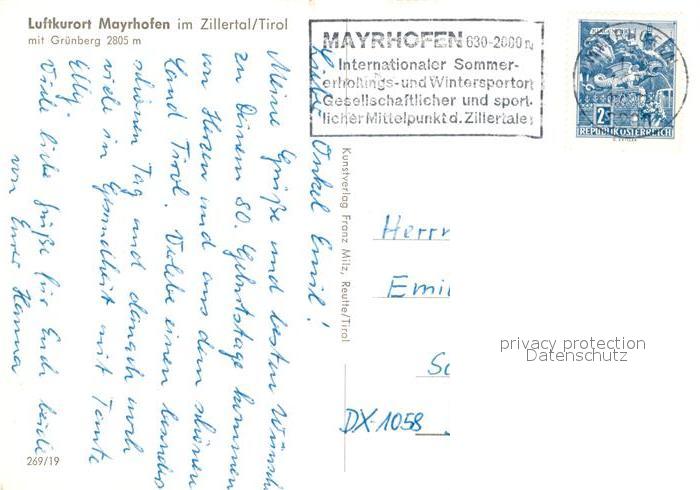 Luftkurort Mayrhofen im Zillertal/Tirol
mit Grünberg 2805 m
MAYRHOFEN 630-2000 m
Internationaler Sommer-
erholungs- und Wintersportort
Gesellschaftlicher und sport-
licher Mittelpunkt d. Zillertales
2S
REPUBLIK ÖSTERREICH
Lieber Onkel Emil!
Meine Grüße und besten Wünsche
zu Deinem 80. Geburtstage kommen
von Herzen und aus dem schönen
Land Tirol. Verlebe einen besonders
schönen Tag und danach noch
viele in Gesundheit mit Tante
Elly.
Viele liebe Grüße für Euch beide
von Eurer Hanna
Kunstverlag Franz Milz, Reutte/Tirol
Herrn
Emil
Sc
DX-1058
privacy protection
Datenschutz
269/19